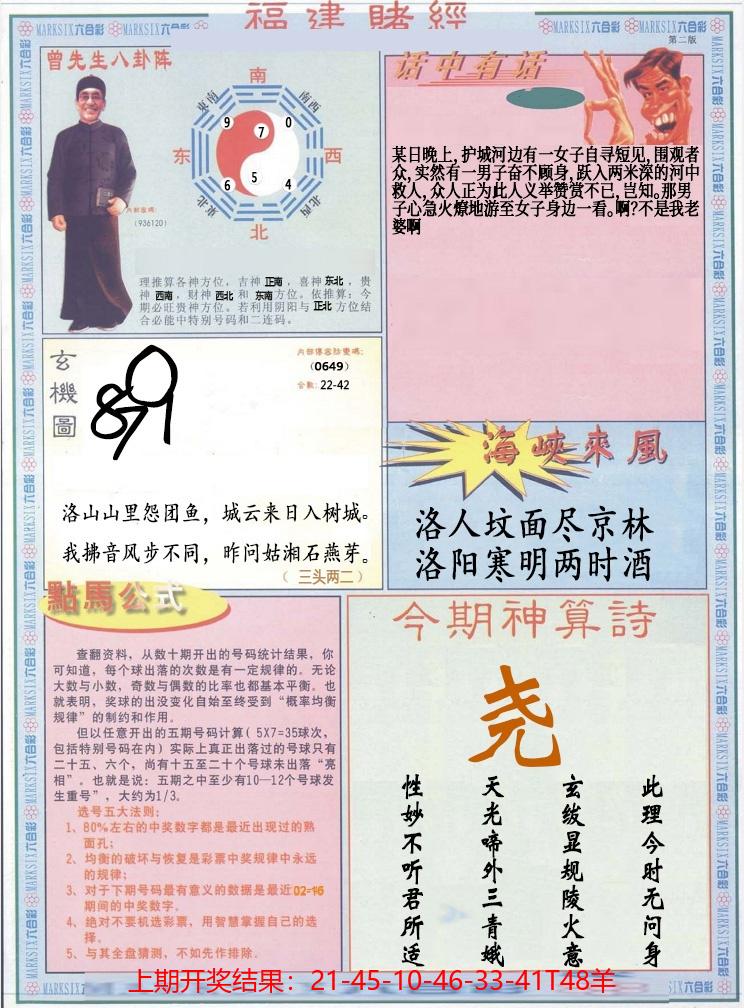 福建賭經
MARKSIX六合彩
第二版
曾先生八卦阵
南
东南
西南
东
西
东北
西北
北
9
7
0
5
6
4
内部密碼:
(936120)
理推算各神方位，吉神正南，喜神东北，贵
神西南，财神西北和东南方位。依推算：今
期必旺贵神方位。若利用阴阳与正北方位结
合必能中特别号码和二连码。
话中有话
某日晚上,护城河边有一女子自寻短见,围观者
众,实然有一男子奋不顾身,跃入两米深的河中
救人,众人正为此人义举赞赏不已,岂知。那男
子心急火燎地游至女子身边一看。啊?不是我老
婆啊
玄機圖
内部傳密防雙碼:
(0649)
合數:22-42
洛山山里怨团鱼，城云来日入树城。
我拂音风步不同，昨问姑湘石燕芽。
（三头两二）
海峽來風
洛人坟面尽京林
洛阳寒明两时酒
點馬公式
查翻资料，从数十期开出的号码统计结果，你
可知道，每个球出落的次数是有一定规律的。无论
大数与小数，奇数与偶数的比率也都基本平衡。也
就表明，奖球的出没变化自始至终受到“概率均衡
规律”的制约和作用。
但以任意开出的五期号码计算( 5X7=35球次，
包括特别号码在内）实际上真正出落过的号球只有
二十五、六个，尚有十五至二十个号球未出落“亮
相”。也就是说：五期之中至少有10—12个号球发
生重号”，大约为1/3。
选号五大法则：
1、80%左右的中奖数字都是最近出现过的熟
面孔；
2、均衡的破坏与恢复是彩票中奖规律中永远
的规律；
3、对于下期号码最有意义的数据是最近02=16
期间的中奖数字。
4、绝对不要机选彩票，用智慧掌握自己的选
择。
5、与其全盘猜测，不如先作排除．
今期神算詩
尧
此理今时无问身
玄绂显规陵火意
天光啼外三青娥
性妙不听君所适
上期开奖结果：21-45-10-46-33-41T48羊